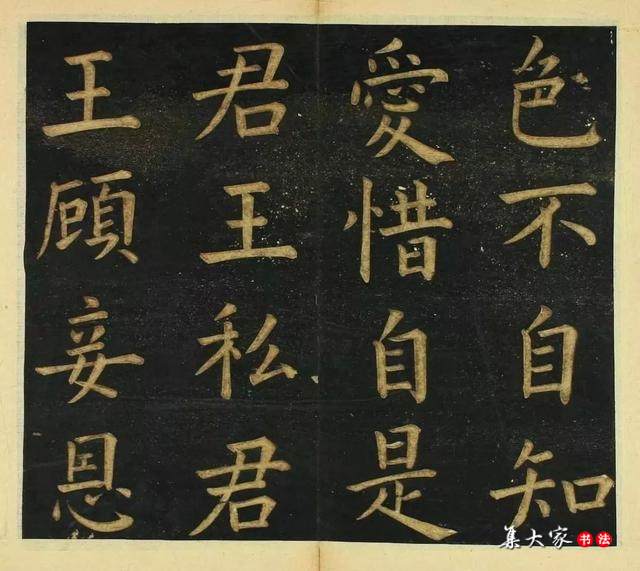 色不自知
愛惜自是
君王私君
王顧妾恩
集大家书法